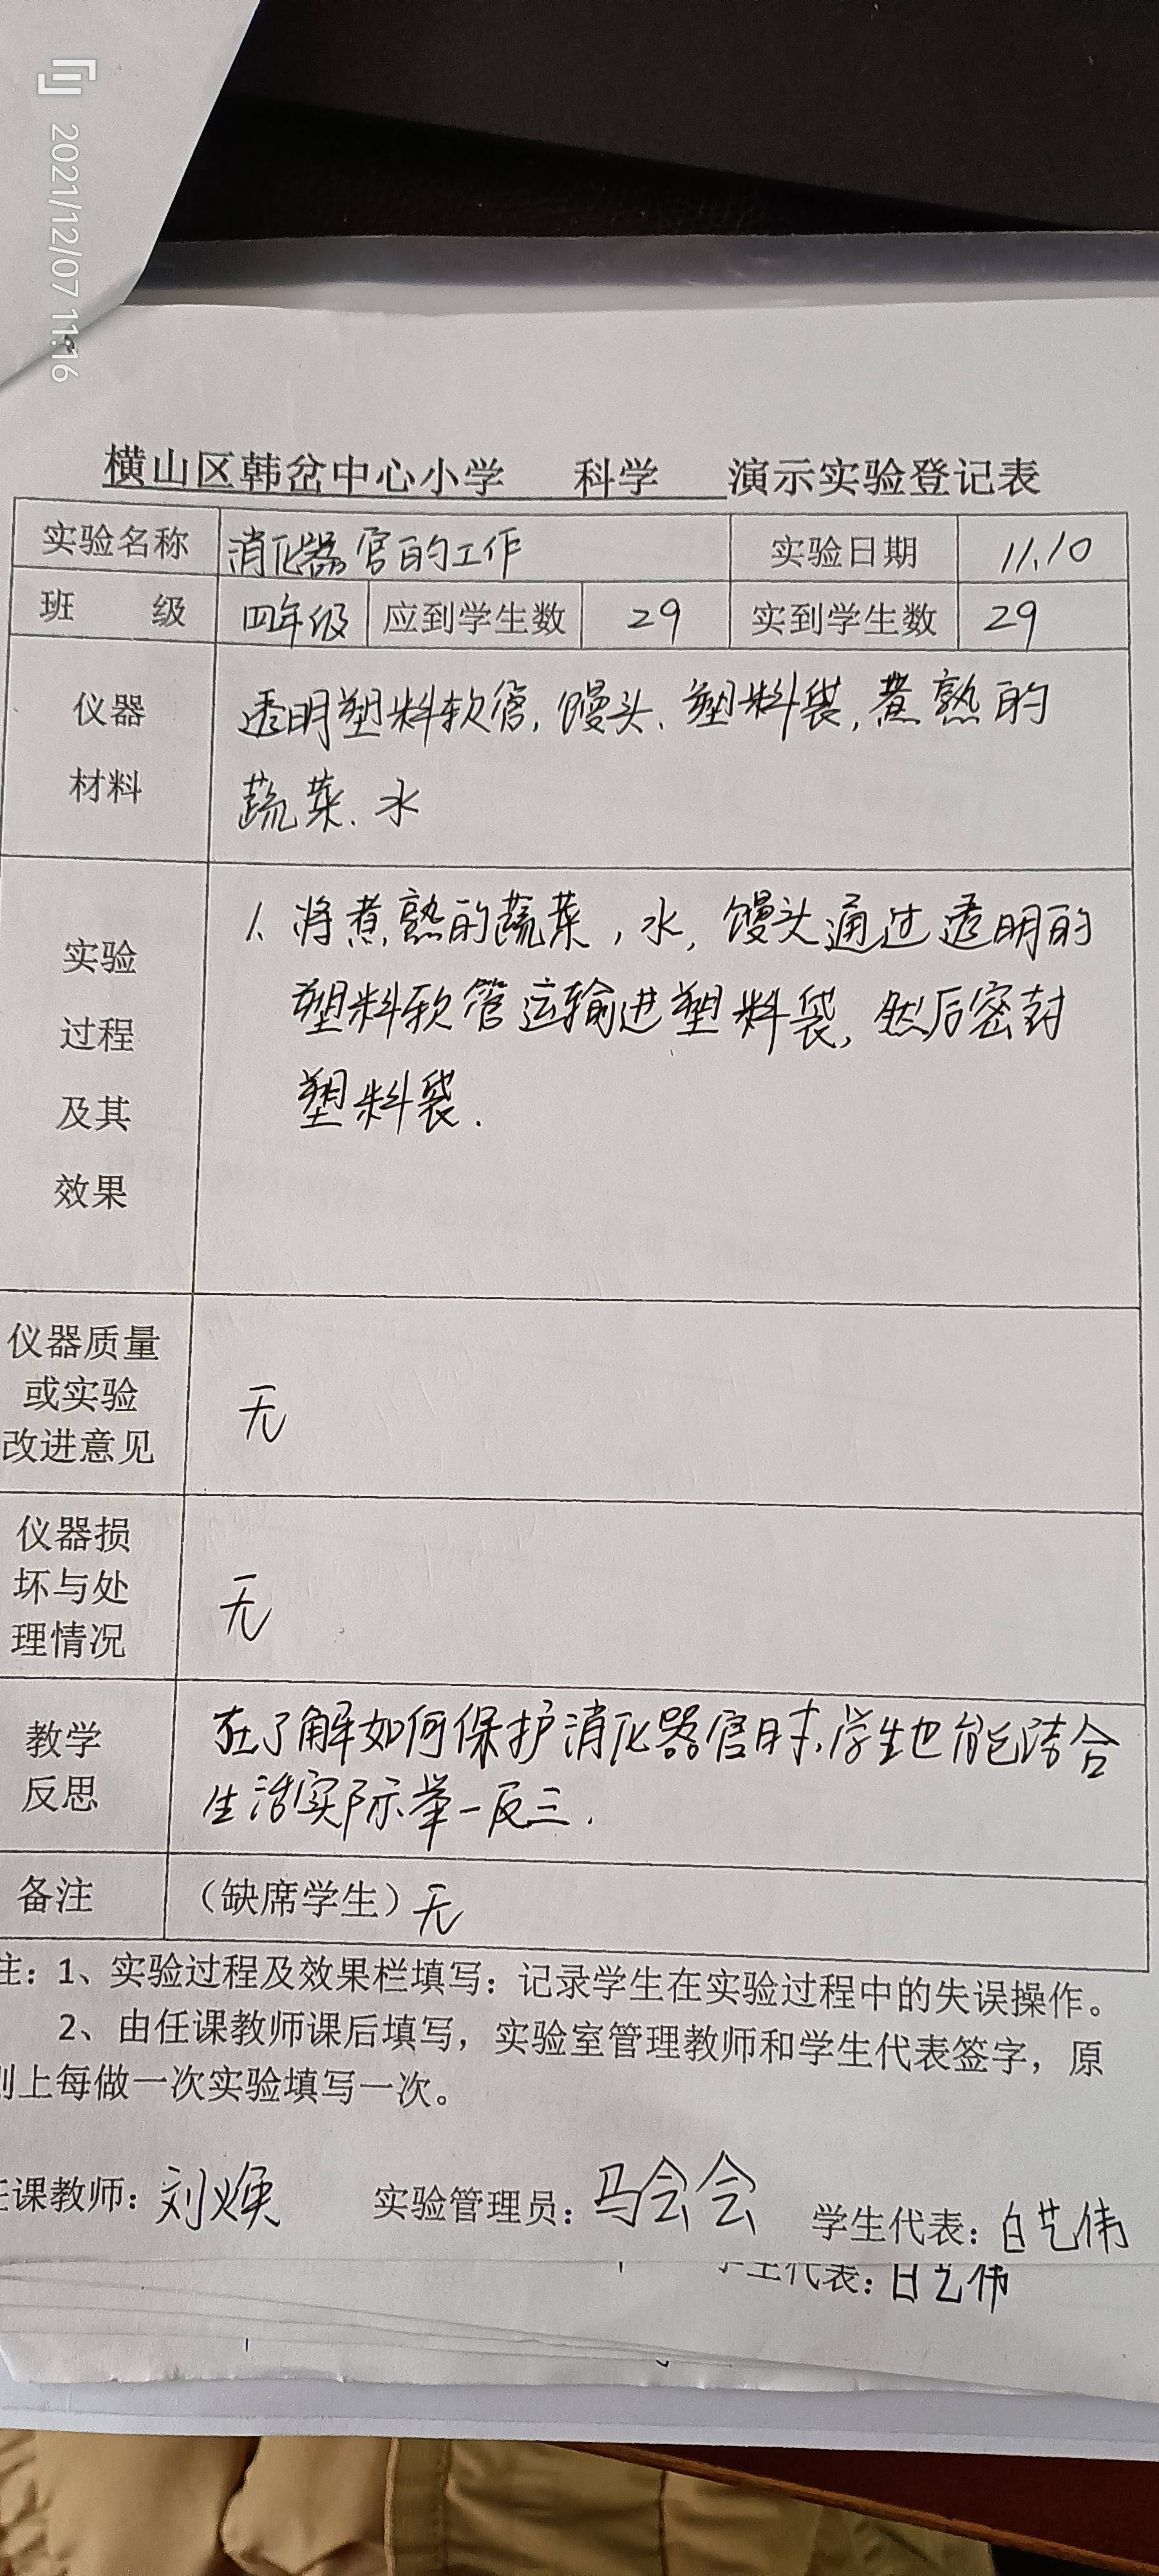 2021/12/07 11:16
横山区韩岔中心小学 科学 演示实验登记表
实验名称 消化器官的工作 实验日期 11.10
班 级 四年级 应到学生数 29 实到学生数 29
仪器
材料
透明塑料软管,馒头、塑料袋,煮熟的
蔬菜、水
实验
过程
及其
效果
1、将煮熟的蔬菜,水,馒头通过透明的
塑料软管运输进塑料袋,然后密封
塑料袋.
仪器质量
或实验
改进意见
无
仪器损
坏与处
理情况
无
教学
反思
在了解如何保护消化器官时,学生也能结合
生活实际举一反三.
备注 (缺席学生)无
注:1、实验过程及效果栏填写:记录学生在实验过程中的失误操作。
2、由任课教师课后填写,实验室管理教师和学生代表签字,原
则上每做一次实验填写一次。
任课教师:刘焕 实验管理员:马会会 学生代表:白艺伟
学生代表:白艺伟